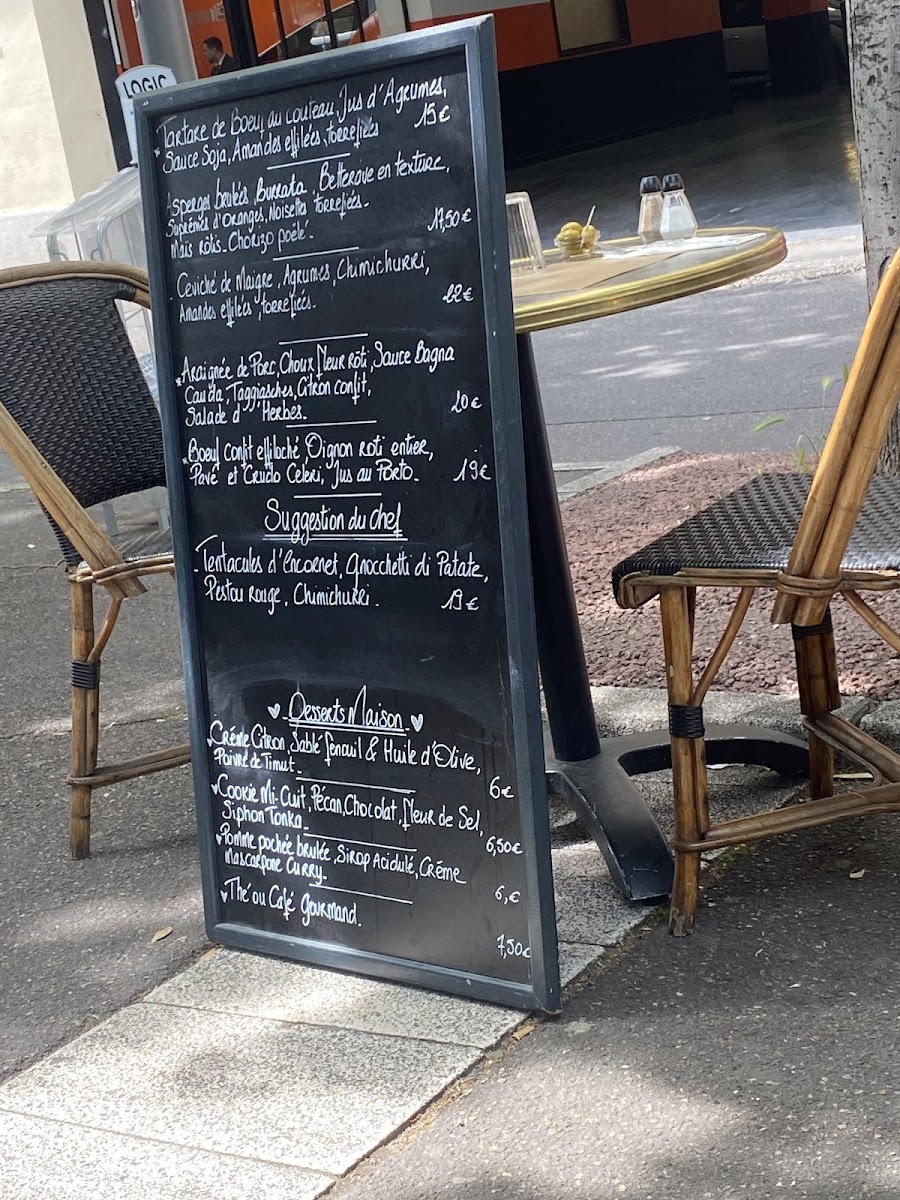 LOGIC
Tartare de Boeuf au couteau, Jus d'Agrumes,
Sauce Soja, Amandes effilées, torrefiées 15€
Asperges brulées, Burrata Betterave en texture,
Suprêmes d'oranges, Noisettes torrefiées-
Maïs rôtis- Chorizo poélé- 17,50€
Ceviché de Maigre, Agrumes, Chimichurri,
Amandes effilées, torrefiées- 22€
Araignée de Porc, Choux fleur rôti, Sauce Bagna
Cauda, Taggiasches, Citron confit,
Salade d' Herbes- 20€
Boeuf confit effiloché, Oignon roti entier,
Pavé et Crudo Céleri, Jus au Porto- 19€
Suggestion du chef
- Tentacules d'encornet, gnocchetti di Patate,
Pestou rouge, Chimichurri- 19€
Desserts Maison
Créme Citron, Sablé fenouil & Huile d'Olive,
Poivre de Timut- 6€
Cookie Mi-Cuit, Pécan, Chocolat, fleur de Sel,
Siphon Tonka- 6,50€
Pomme pochée brulée, Sirop Acidulé, Créme
Mascarpone Curry- 6,€
Thé ou Café gourmand. 7,50€